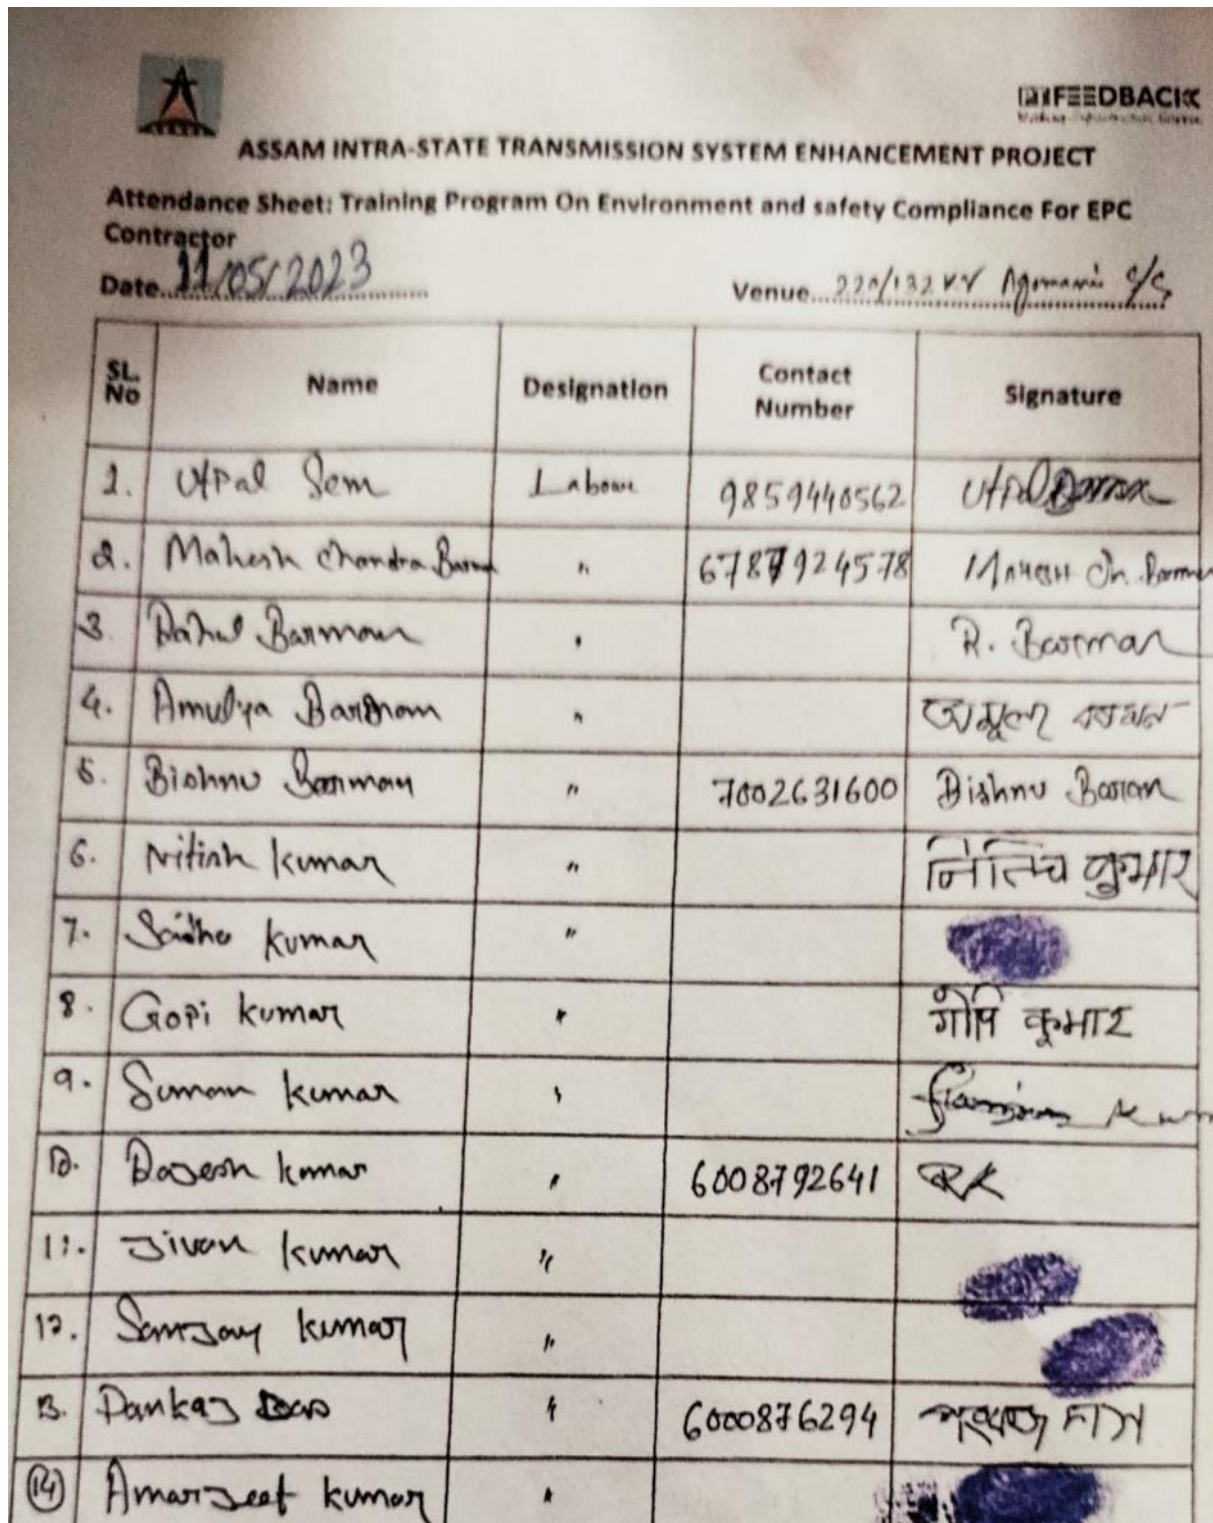 FEEDBACK
ASSAM INTRA-STATE TRANSMISSION SYSTEM ENHANCEMENT PROJECT
Attendance Sheet: Training Program On Environment and safety Compliance For EPC
Contractor
Date..11/05/2023 Venue...220/132 KV Agomani S/S
SL. No Name Designation Contact Number Signature
1. Utpal Sem Labour 9859440562 Utpal
2. Mahesh Chandra Barman " 6787924578 Mahesh Ch. Barman
3. Rahul Barman " R. Barman
4. Amulya Barman " অমূল্য বর্মন
5. Bishnu Barman " 7002631600 Bishnu Barman
6. Nitish Kumar " नितिश कुमार
7. Kumar "
8. Gopi Kumar " गोपि कुमार
9. Suman Kumar "
10. Rajesh Kumar " 6008792641 RK
11. Jivan Kumar "
12. Sanjay Kumar "
13. Pankaj Das " 6000876294 পংকজ দাস
14 Amarjeet Kumar "